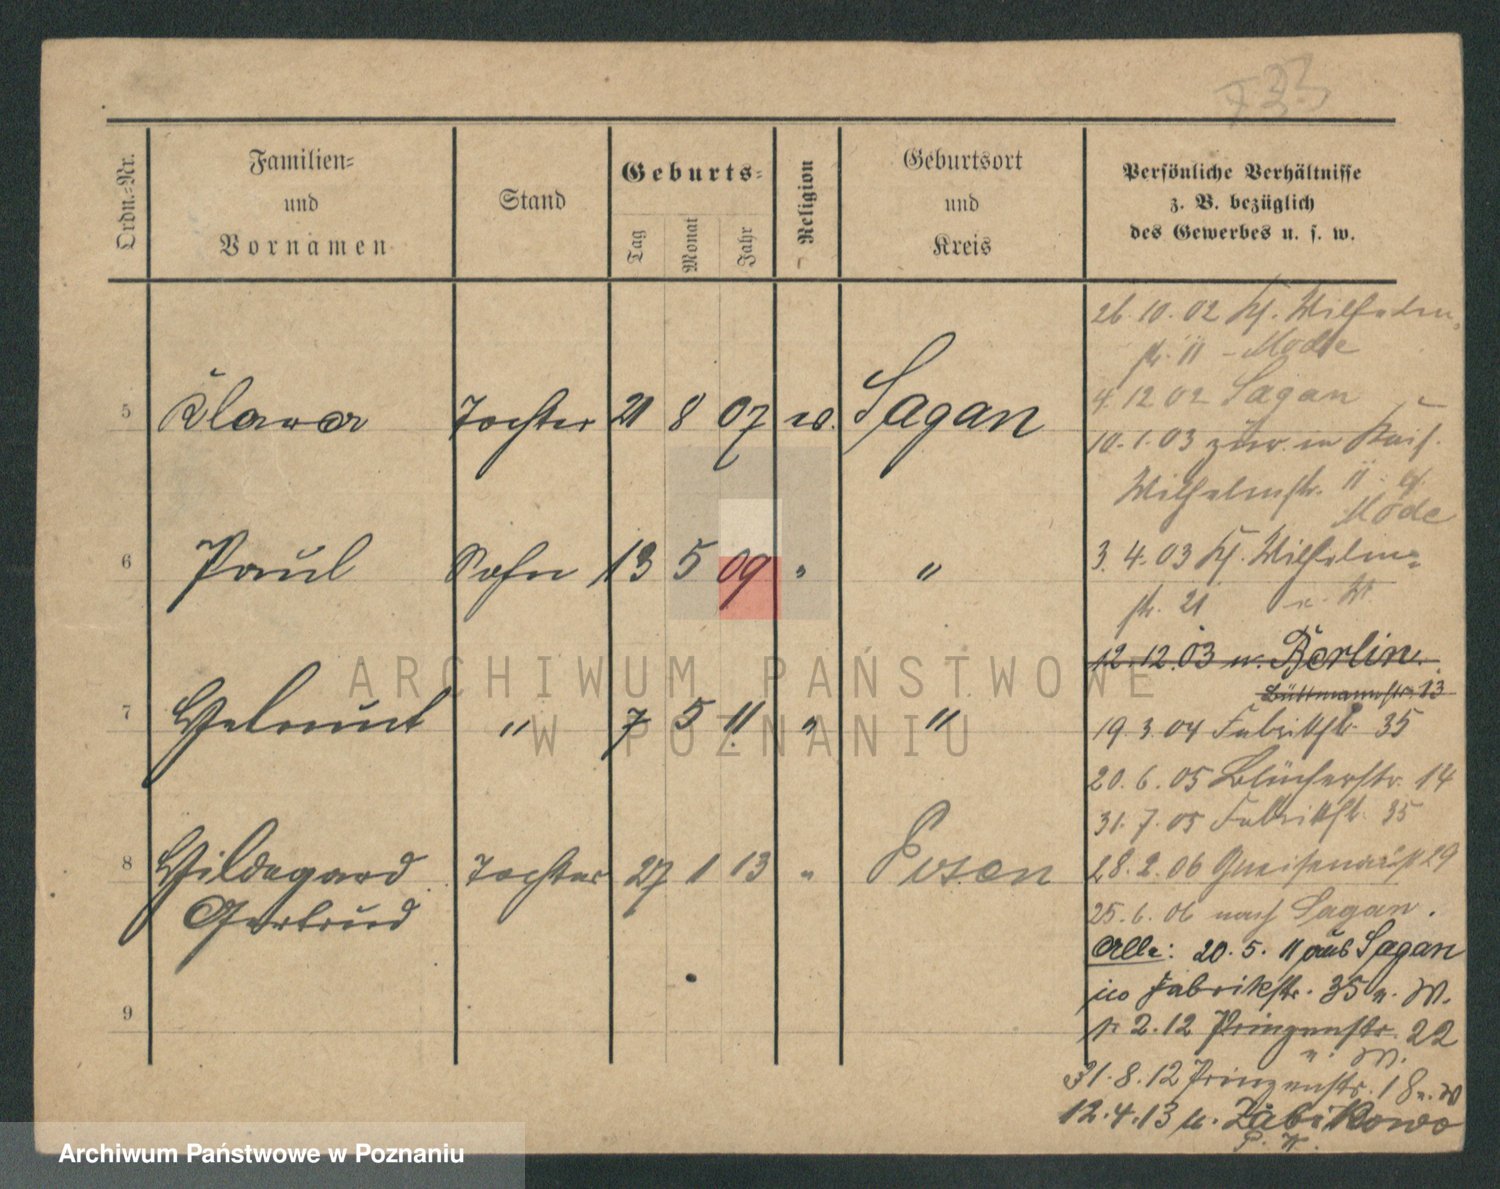 733
Ordn.=Nr.
Familien=
und
Vornamen
Stand
Geburts=
Tag
Monat
Jahr
Religion
Geburtsort
und
Kreis
Persönliche Verhältnisse
z. B. bezüglich
des Gewerbes u. s. w.
5 Klara Tochter 21 8 07 ev. Sagan
6 Paul Sohn 13 5 09 " "
7 Helmut " 7 5 11 " "
8 Hildegard Tochter 27 1 13 " Posen
Gertrud
9
26.10.02 Kf. Wilhelm
str. 11 - Mode
4.12 02 Sagan
10.1.03 zur. in Kais.
Wilhelmstr. 11
Mode
3.4.03 Kf. Wilhelm=
str. 21
12.12.03 n. Berlin.
Büttmannstr. 13
19.3.04 Fabrikstr. 35
20.6.05 Blücherstr. 14
31.7.05 Fabrikstr. 35
28.2.06 Gneisenaustr 29
25.6.06 nach Sagan.
Alle: 20.5.11 aus Sagan
Fabrikstr. 35 n. W.
2.12 Prinzenstr. 22
n. W.
31.8.12 Prinzenstr. 18 n. W
12.4.13 n. Zabikowo
P. W.
ARCHIWUM PAŃSTWOWE
W POZNANIU
Archiwum Państwowe w Poznaniu